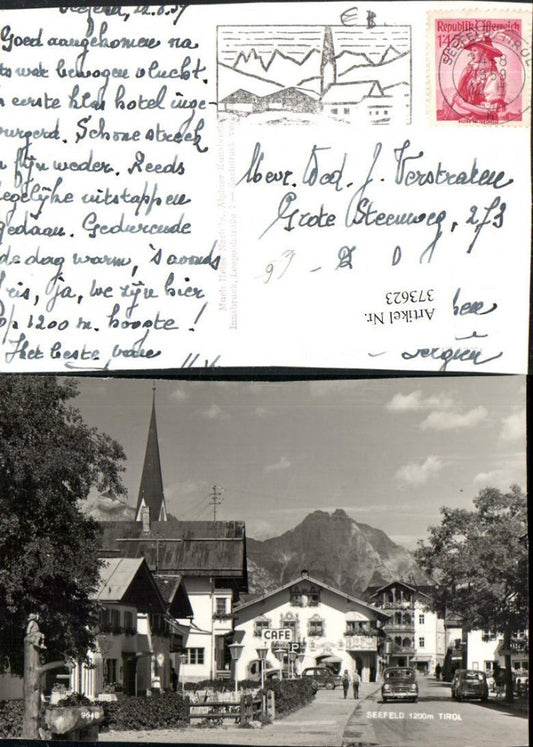 Seefeld, 22.8.59
Goed aangekomen na
iets wat bewogen vlucht.
In eerste klas hotel inge-
burgerd. Schone streek
en fijn weder. Reeds
degelijke uitstappen
gedaan. Gedurende
de dag warm, 's avonds
fris, ja, we zijn hier
op 1200 m. hoogte!
Het beste van
E B.
Republik Österreich
SEEFELD TIROL
Mevr. Wed. J. Verstraken
Grote Steenweg, 273
Artikel Nr.
373623
CAFE
9640
SEEFELD 1200m TIROL